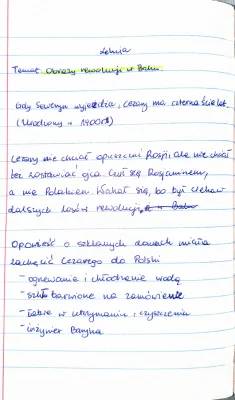 Lekcja
Temat: Obrazy rewolucji w Baku.
Gdy Seweryn wyjeżdża, Cezary ma czternaście lat.
(Urodzony w 1900r)
Cezary nie chciał opuszczać Rosji, ale nie chciał
też zostawiać ojca. Czuł się Rosjaninem,
a nie Polakiem. Wahał się, bo był ciekaw
dalszych losów rewolucji
Opowieść o szklanych domach miała
zachęcić Cezarego do Polski
- ogrzewanie i chłodzenie wodą
- szkło barwione na zamówienie
- łatwe w utrzymaniu i czyszczeniu
- inżynier Baryka